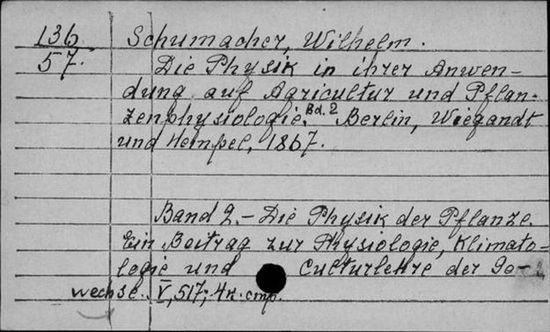 136
57.
Schumacher, Wilhelm.
Die Physik in ihrer Anwen-
dung auf Agricultur und Pflan-
zenphysiologie. Bd. 2 Berlin, Wiegandt
und Hempel, 1867.
Band 2. - Die Physik der Pflanze
Ein Beitrag zur Physiologie, Klimato-
logie und Culturlehre der Ge-
wechse. V, 517; 4к. стр.